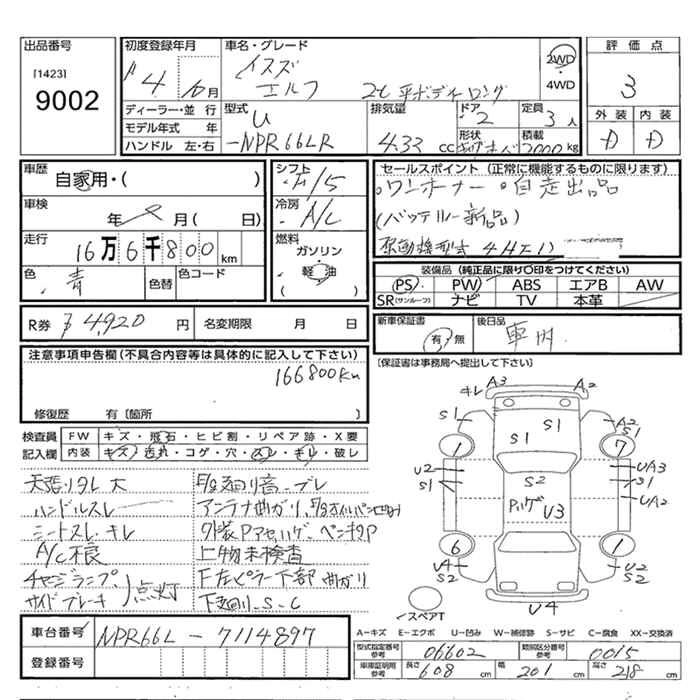 出品番号
[1423]
9002
初度登録年月
4年 月
車名・グレード
イスズ
エルフ 2t 平ボディ ロング
2WD
・
4WD
評価点
3
外装 内装
D D
ディーラー・並行
モデル年式 年
ハンドル 左・右
型式
U
-NPR66LR
排気量
4.33 cc
ドア
2
定員
3人
形状
積載
2000kg
車歴
自家用・( )
車検
年 月( 日)
走行
16万6千800km
色
青
色替
色コード
シフト
/5
冷房
A/C
燃料
ガソリン
軽油
( )
セールスポイント(正常に機能するものに限ります)
・ワンオーナー ・自走出品
(バッテリー新品)
原動機型式 4HF1
装備品(純正品に限り○印をつけてください)
PS PW ABS エアB AW
SR(サンルーフ) ナビ TV 本革
R券 4,920円
名変期限 月 日
新車保証書
有・無
後日品
[保証書は事務局へ提出して下さい]
注意事項申告欄(不具合内容等は具体的に記入して下さい)
166800Km
修復歴 有〔箇所 〕
検査員
記入欄
FW キズ・飛石・ヒビ割・リペア跡・X要
内装 キズ・汚れ・コゲ・穴・スレ・キレ・破レ
天張りタレ大
ハンドルスレ
シートスレ、キレ
A/C不良
チャージランプ、
サイドブレーキ 点灯
F/S廻り音、ブレ
アンテナ曲ガリ、
外装Pマセ、ハゲ、ペンキタP
上物未検査
F左ピラー下部曲ガリ
下廻り、S、C
キレ A3 A2
S1 S1 A2
S1 S1
1 7
U2 S2 UA3
S1 S1
Pハゲ U3 UA2
6 1
U4 U2
S2 S2
U4
スペアT
車台番号 NPR66L-7114897
登録番号
A-キズ E-エクボ U-凹み W-補修跡 S-サビ C-腐食 XX-交換済
型式指定番号
参考 06602
類別区分番号
参考 0015
車庫証明用
参考 長さ 608cm 幅 201cm 高さ 218cm